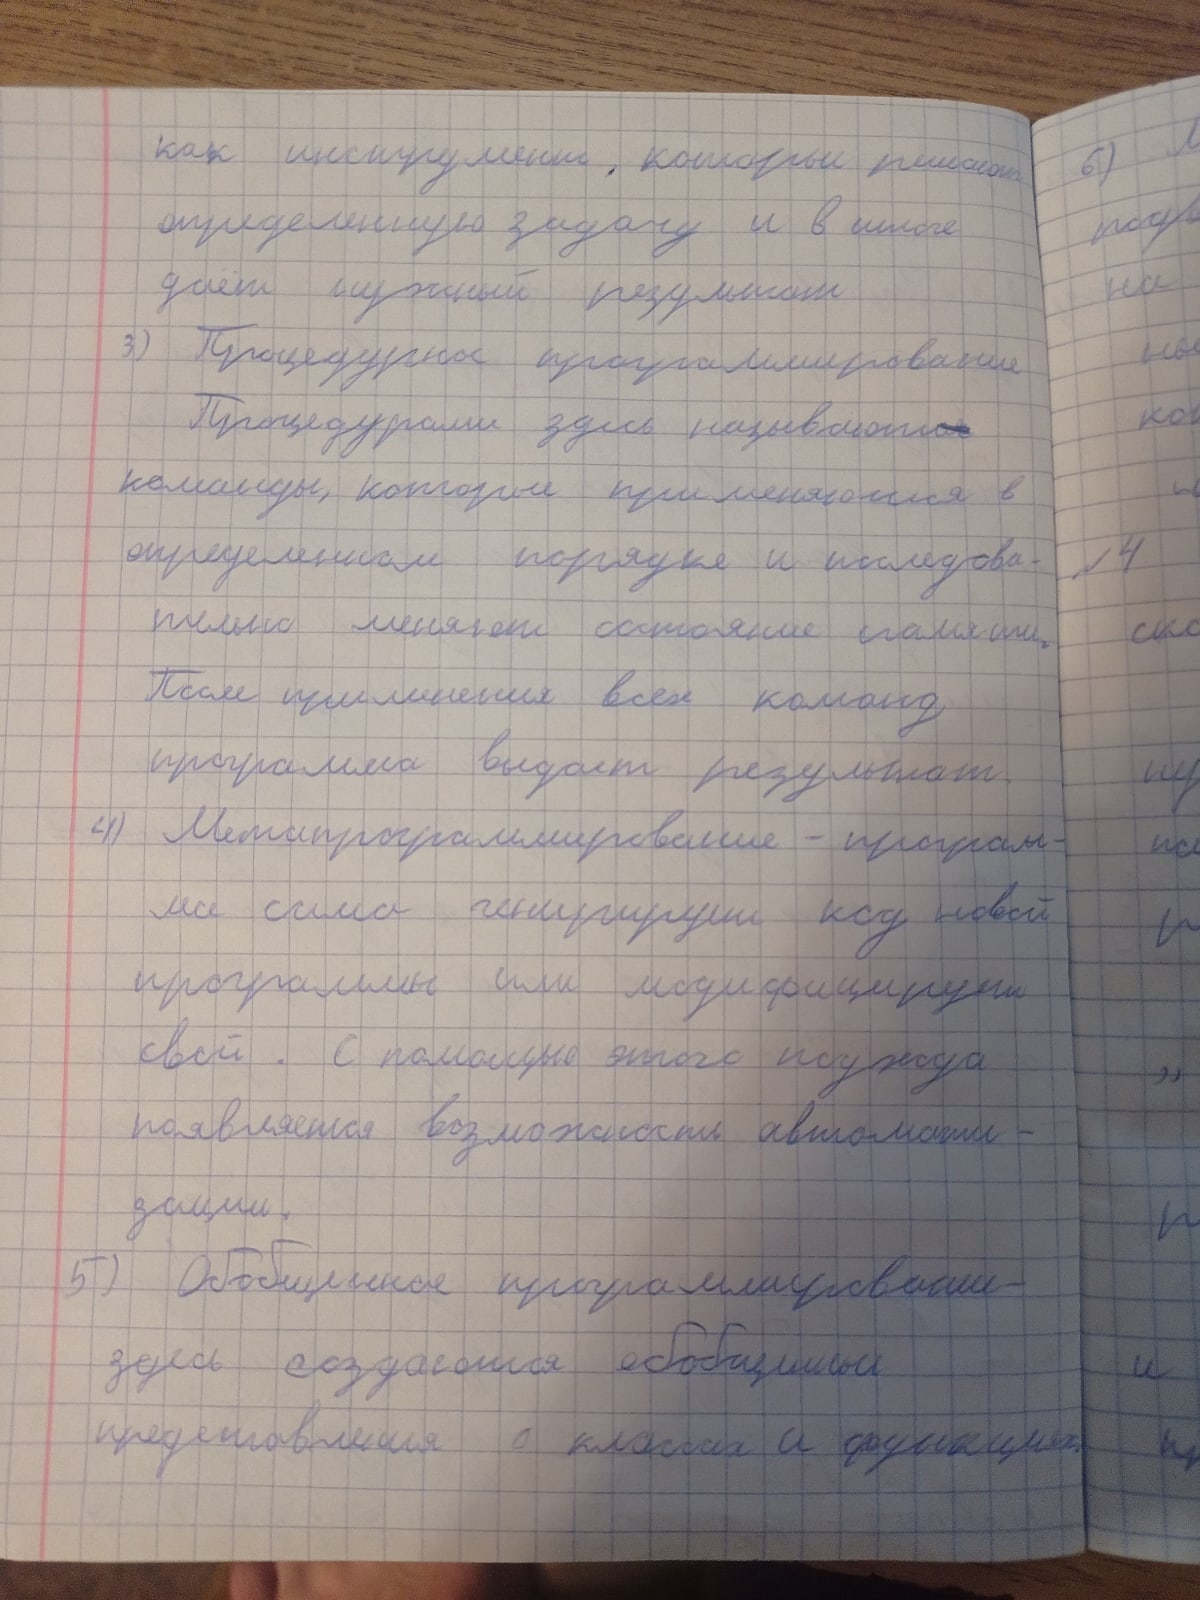 как инструмент, который решает
определенную задачу и в итоге
даёт нужный результат
3) Процедурное программирование
Процедурами здесь называют
команды, которые применяются в
определенном порядке и последова-
тельно меняют состояние памяти.
После применения всех команд
программа выдает результат.
4) Метапрограммирование - програм-
ма сама генерирует код новой
программы или модифицирует
свой. С помощью этого подхода
появляется возможность автомати-
зации.
5) Обобщенное программировании-
здесь создаются обобщенные
представления о классах и функциях.
6)
на
14
и